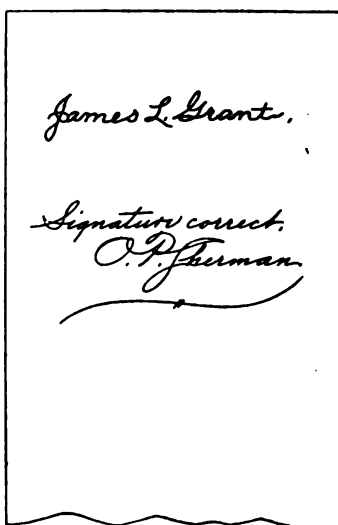 James L. Grant.
Signature correct.
O. P. Sherman